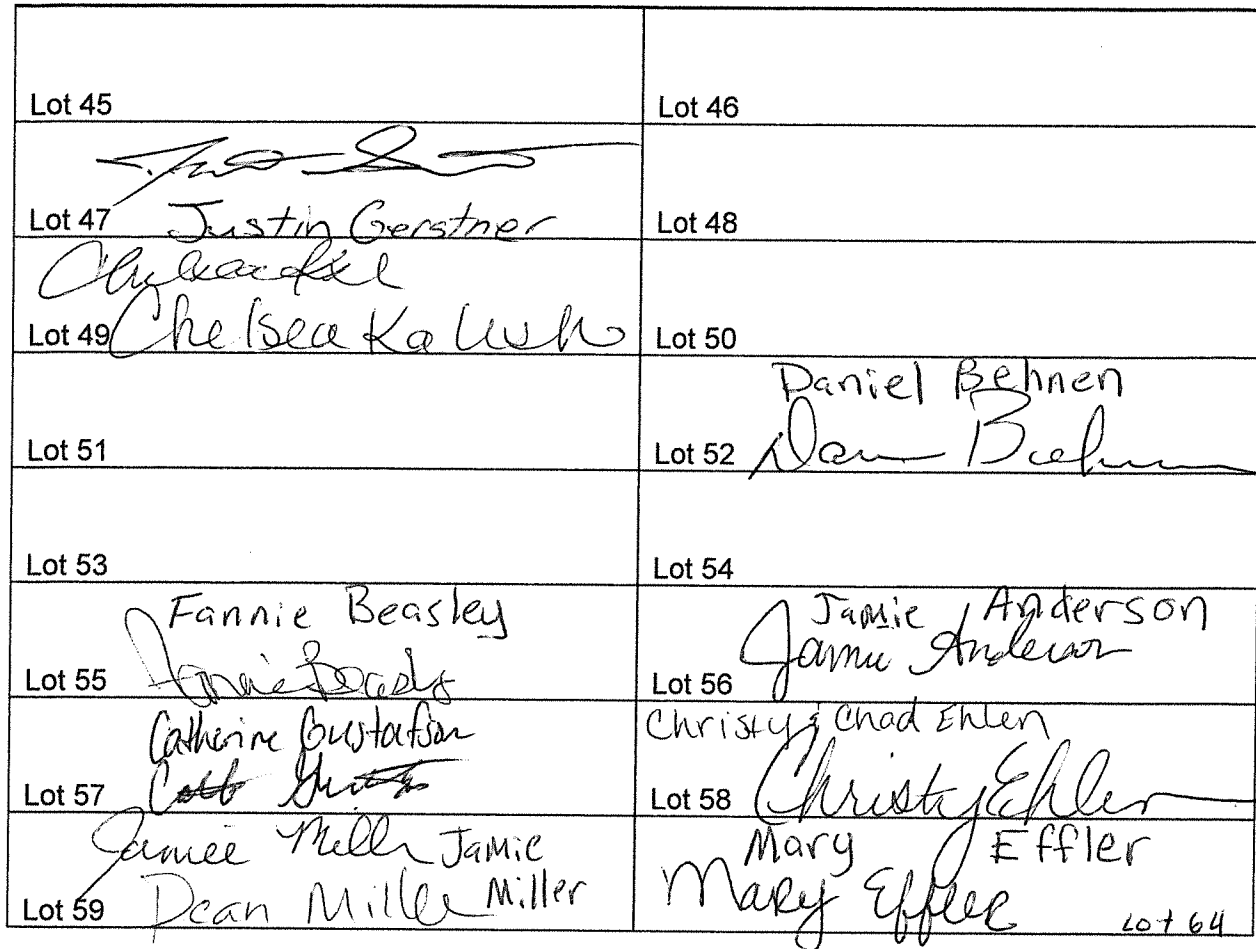 Lot 45
Lot 46
Lot 47 Justin Gerstner
Lot 48
Lot 49 Chelsea Kalush
Lot 50
Lot 51
Daniel Behnen
Lot 52
Lot 53
Lot 54
Fannie Beasley
Lot 55 Fannie Beasley
Jamie Anderson
Lot 56 Jamie Anderson
Catherine Gustafson
Lot 57
Christy & Chad Ehlen
Lot 58 Christy Ehlen
Jamie Miller Jamie
Lot 59 Dean Miller Miller
Mary Effler
Mary Effler Lot 64